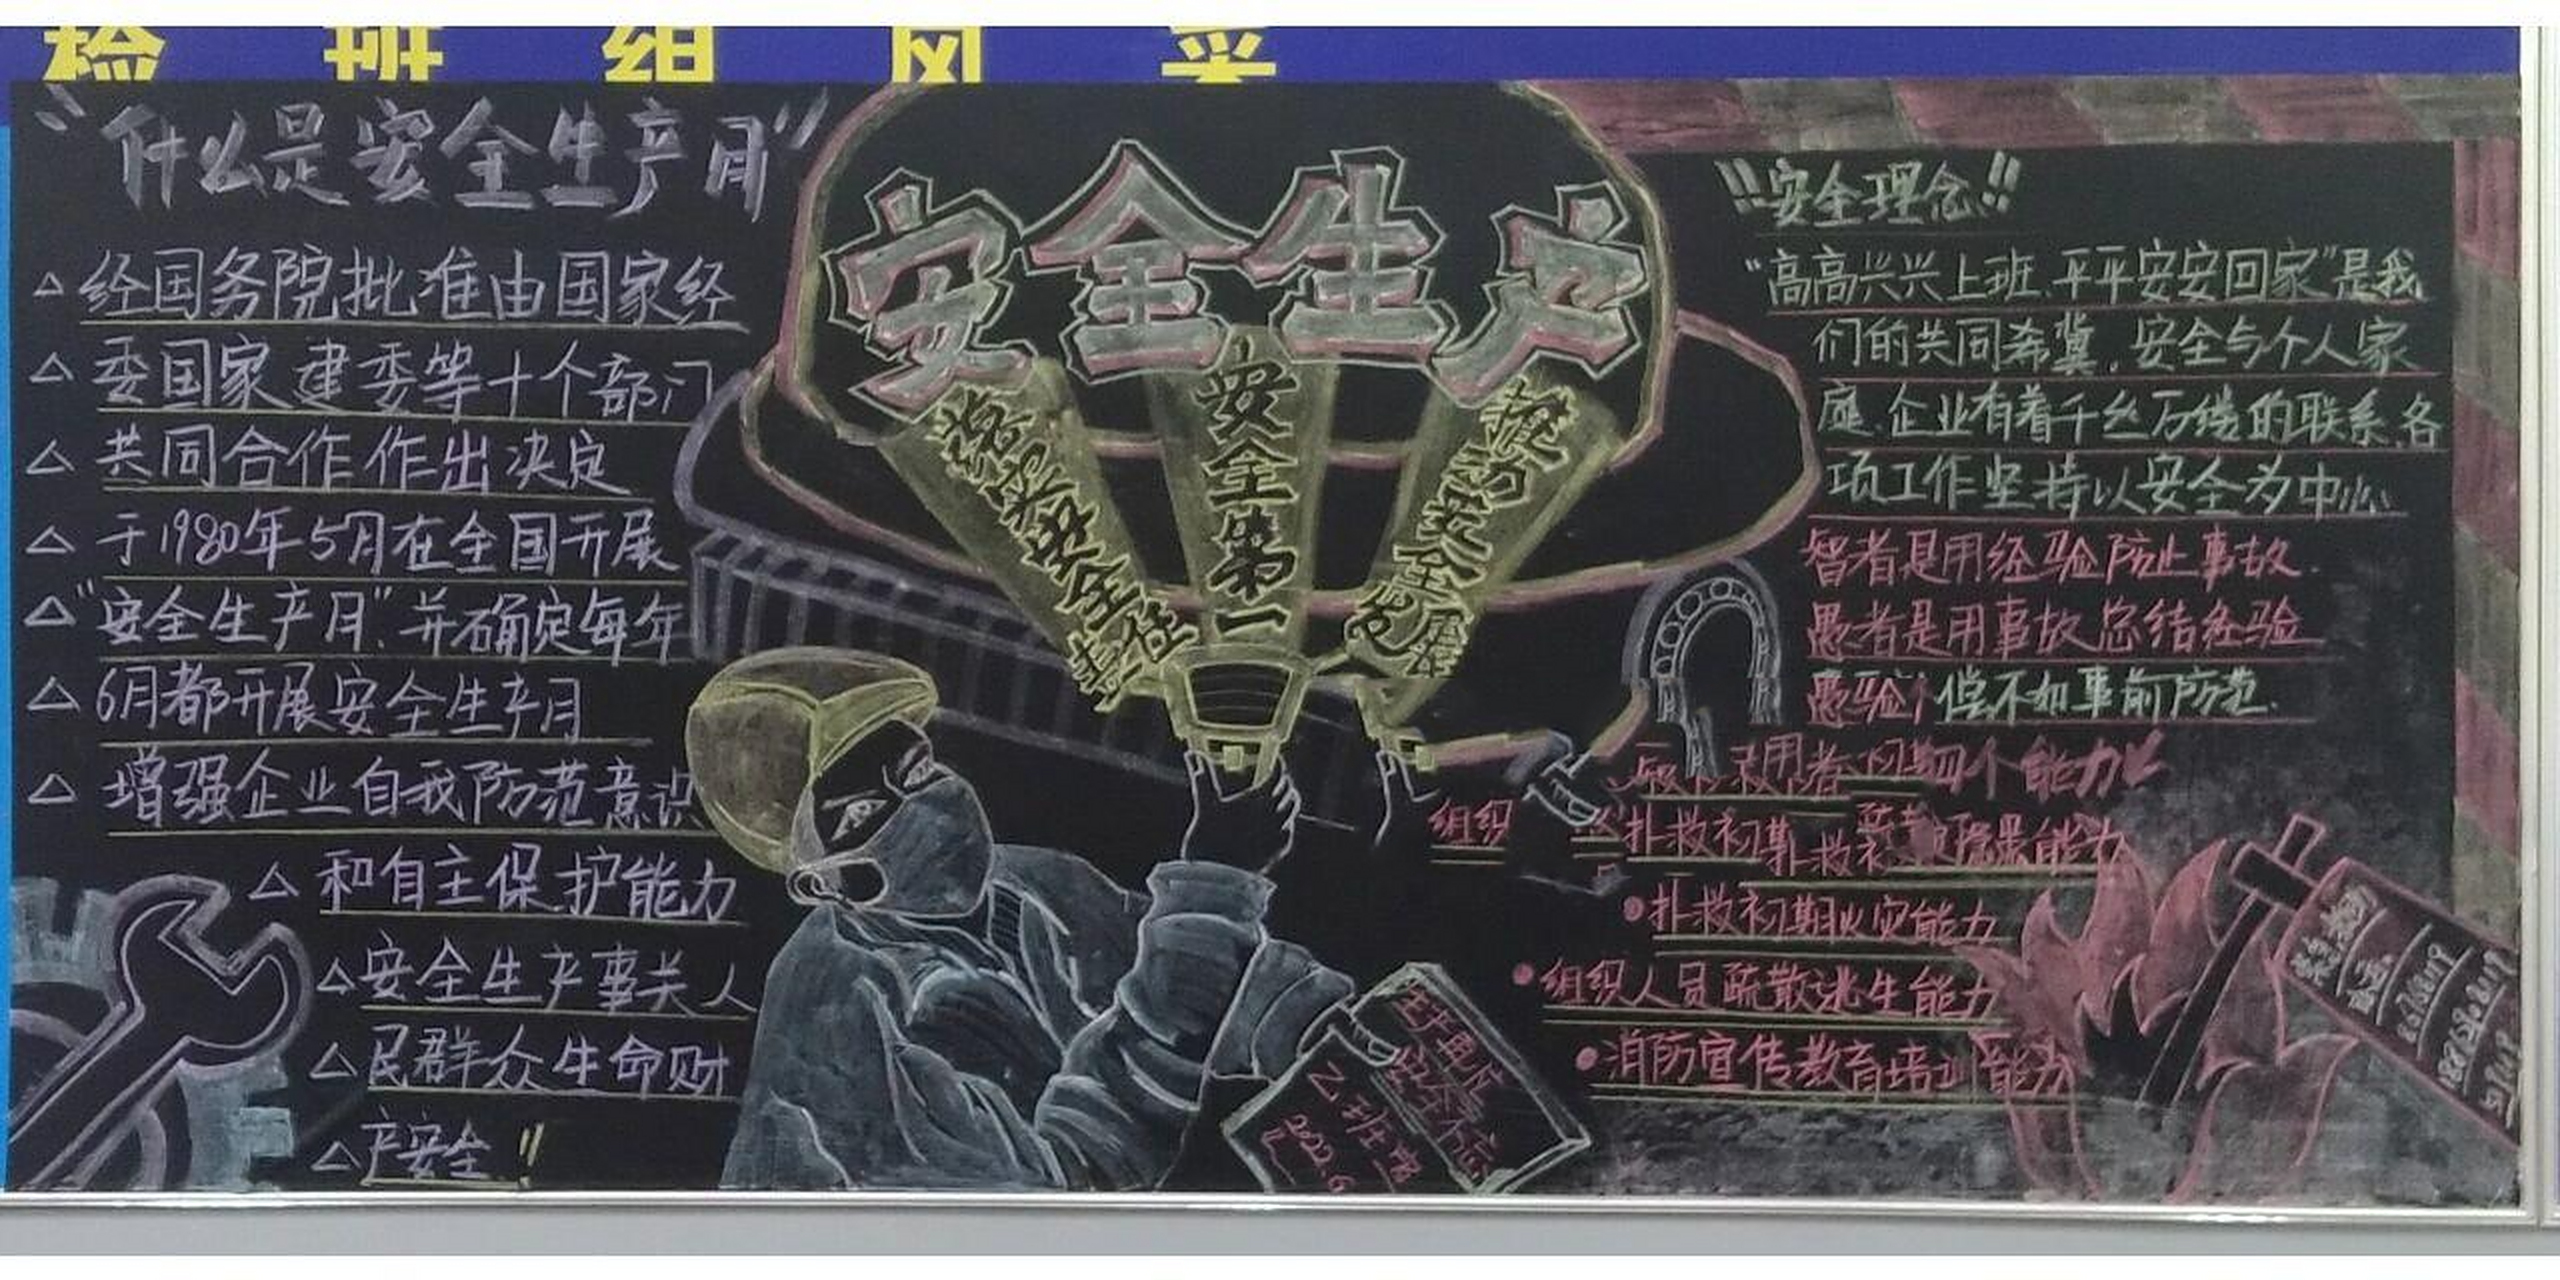 "什么是安全生产月"
△经国务院批准由国家经
△委国家建委等十个部门
△共同合作作出决定
△于1980年5月在全国开展
△"安全生产月".并确定每年
△6月都开展安全生产月
△增强企业自我防范意识
△和自主保护能力
△安全生产事关人
△民群众生命财
△产安全!!
安全生产
落实安全责任
安全第一
推动安全发展
生产再忙
安全不忘
乙班宣
2022.6
"安全理念!!
"高高兴兴上班.平平安安回家"是我
们的共同希冀.安全与个人家
庭.企业有着千丝万缕的联系.各
项工作坚持以安全为中心
智者是用经验防止事故
愚者是用事故总结经验
偿不如事前防范.
四个能力
组织
扑救初期
隐患能力
•扑救初期火灾能力
•组织人员疏散逃生能力
•消防宣传教育培训能力